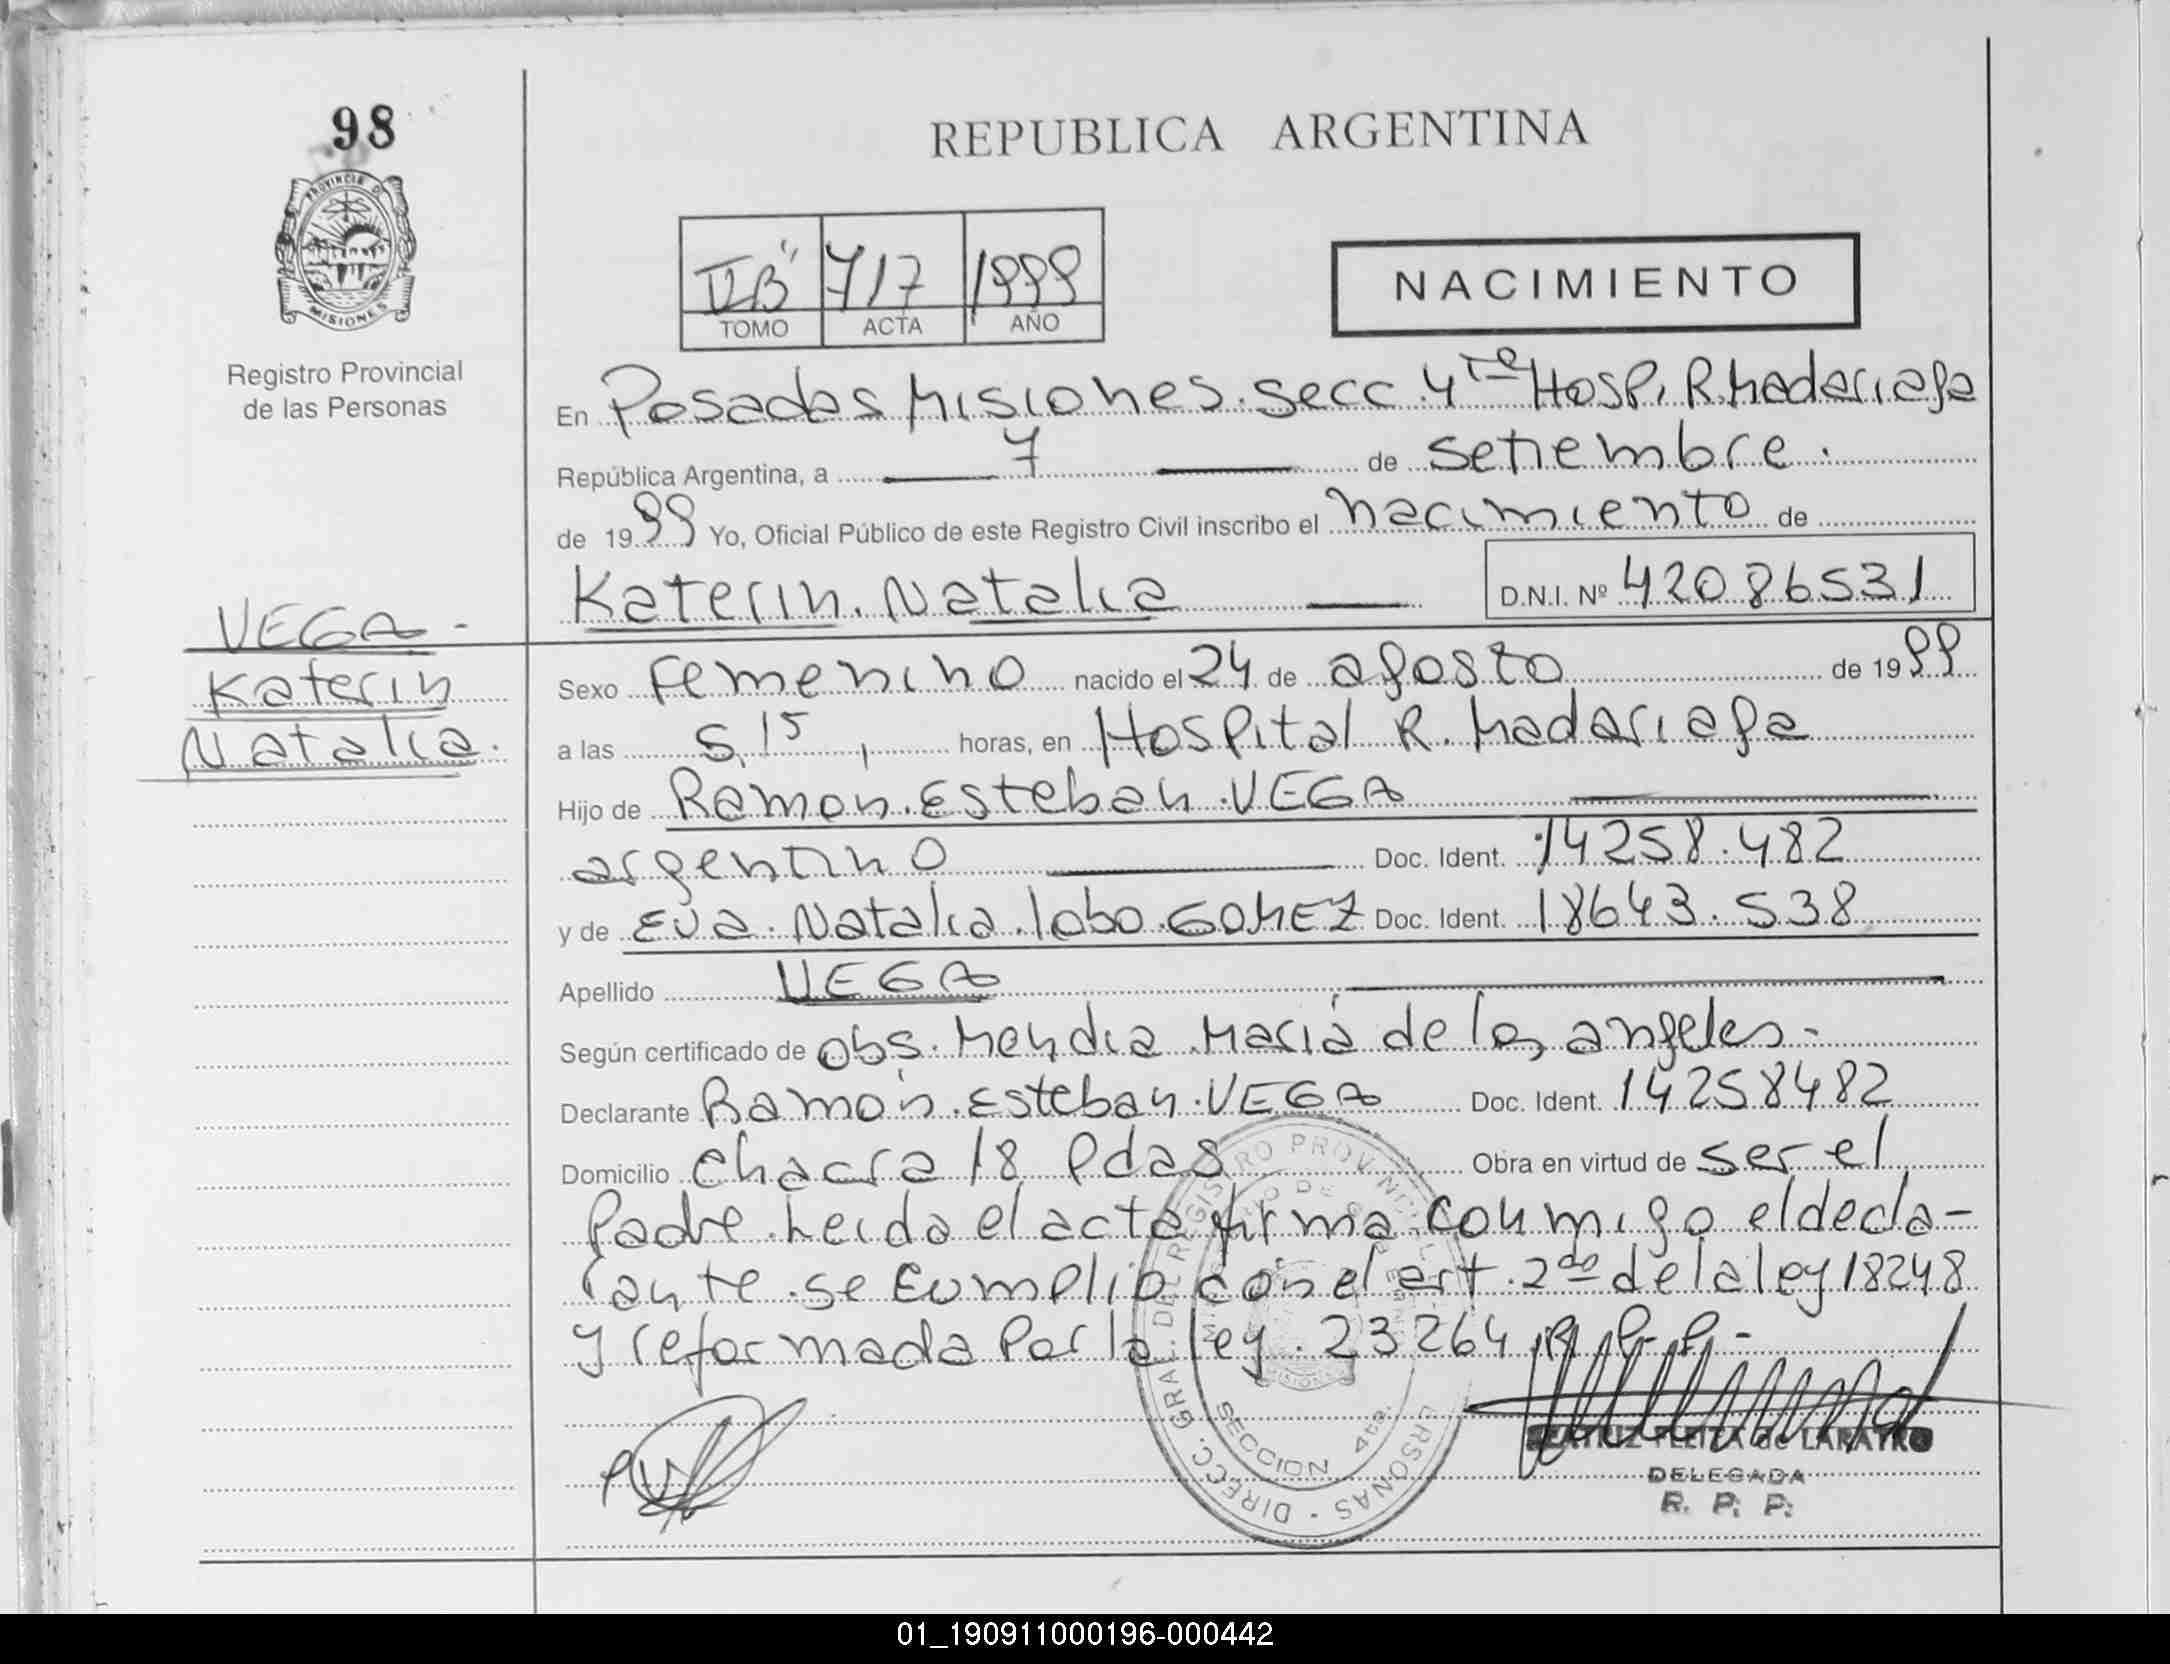 98
REPUBLICA ARGENTINA
PROVINCIA DE
MISIONES
Registro Provincial
de las Personas
717 1999
TOMO ACTA AÑO
NACIMIENTO
En Posadas Misiones. Secc. 4ta Hosp. R. Madariaga
República Argentina, a 7 de setiembre.
de 1999 Yo, Oficial Público de este Registro Civil inscribo el nacimiento de
Katerin. Natalia D.N.I. Nº 42086531
VEGA -
Katerin
Natalia.
Sexo Femenino nacido el 24 de agosto de 1999
a las 5,15, horas, en Hospital R. Madariaga
Hijo de Ramon. Esteban. VEGA
argentino Doc. Ident. 14258.482
y de Eva. Natalia. lobo. GOMEZ Doc. Ident. 18643.538
Apellido VEGA
Según certificado de Obs. Mendia Maria de los angeles -
Declarante Ramón. Esteban. VEGA Doc. Ident. 14258482
Domicilio Chacra 18 Pdas Obra en virtud de ser el
Padre. Leida el acta firma conmigo el decla-
rante. se Cumplió con el art. 2do de la ley 18248
y reformada Por la ley. 23264. R. P. P. -
DIRECC. GRAL. DEL REGISTRO PROVINCIAL PERSONAS
SECCION 4ta.
MISIONES
BEATRIZ de
DELEGADA
R. P. P.
01_190911000196-000442